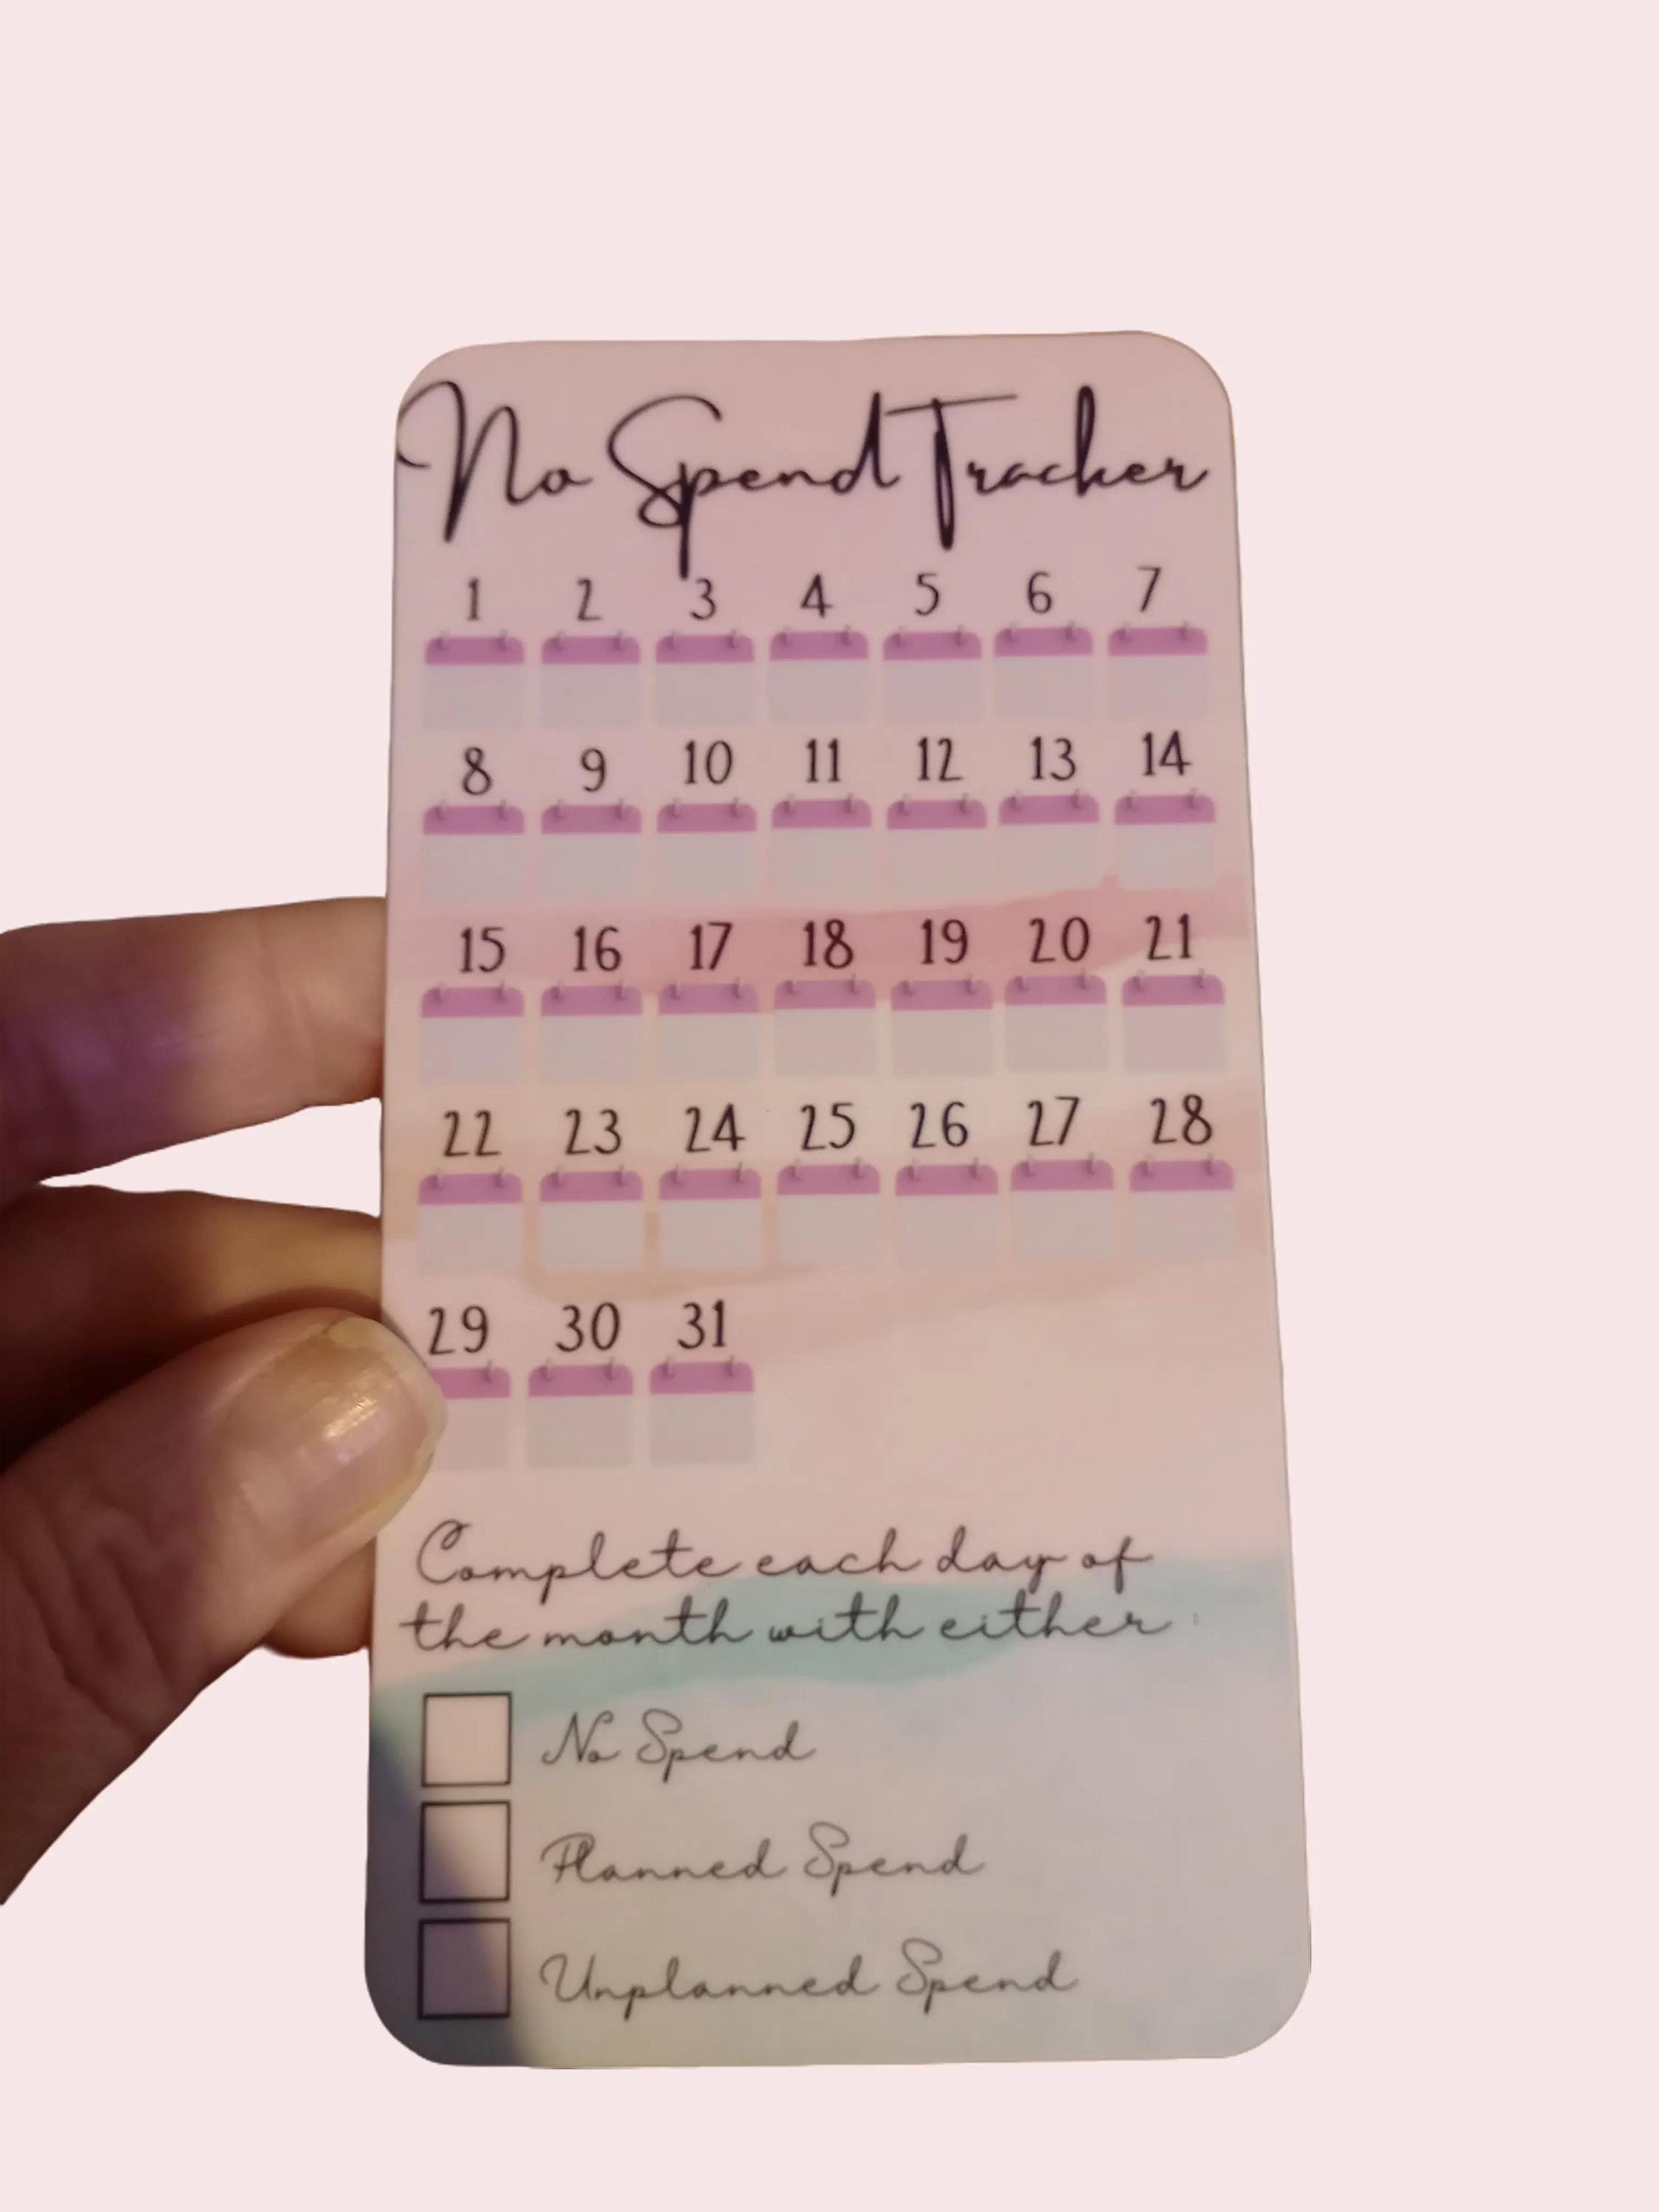 No Spend Tracker
1 2 3 4 5 6 7
8 9 10 11 12 13 14
15 16 17 18 19 20 21
22 23 24 25 26 27 28
29 30 31
Complete each day of
the month with either :
No Spend
Planned Spend
Unplanned Spend